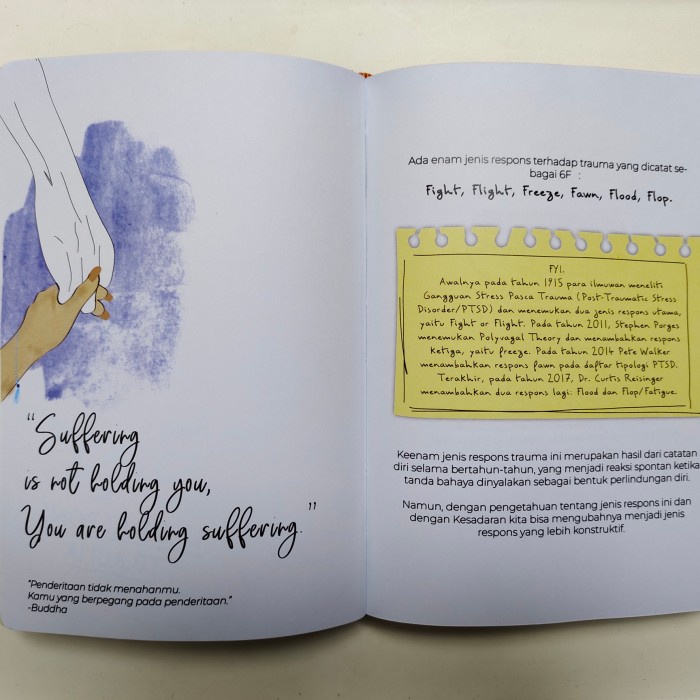 “Suffering
is not holding you,
You are holding suffering.”
"Penderitaan tidak menahanmu.
Kamu yang berpegang pada penderitaan."
-Buddha
Ada enam jenis respons terhadap trauma yang dicatat se-
bagai 6F :
Fight, Flight, Freeze, Fawn, Flood, Flop.
FYI.
Awalnya pada tahun 1915 para ilmuwan meneliti
Gangguan Stress Pasca Trauma (Post-Traumatic Stress
Disorder/PTSD) dan menemukan dua jenis respons utama,
yaitu Fight or Flight. Pada tahun 2011, Stephen Porges
menemukan Polyvagal Theory dan menambahkan respons
ketiga, yaitu freeze. Pada tahun 2014 Pete Walker
menambahkan respons fawn pada daftar tipologi PTSD.
Terakhir, pada tahun 2017, Dr. Curtis Reisinger
menambahkan dua respons lagi: Flood dan Flop/Fatigue.
Keenam jenis respons trauma ini merupakan hasil dari catatan
diri selama bertahun-tahun, yang menjadi reaksi spontan ketika
tanda bahaya dinyalakan sebagai bentuk perlindungan diri.
Namun, dengan pengetahuan tentang jenis respons ini dan
dengan Kesadaran kita bisa mengubahnya menjadi jenis
respons yang lebih konstruktif.